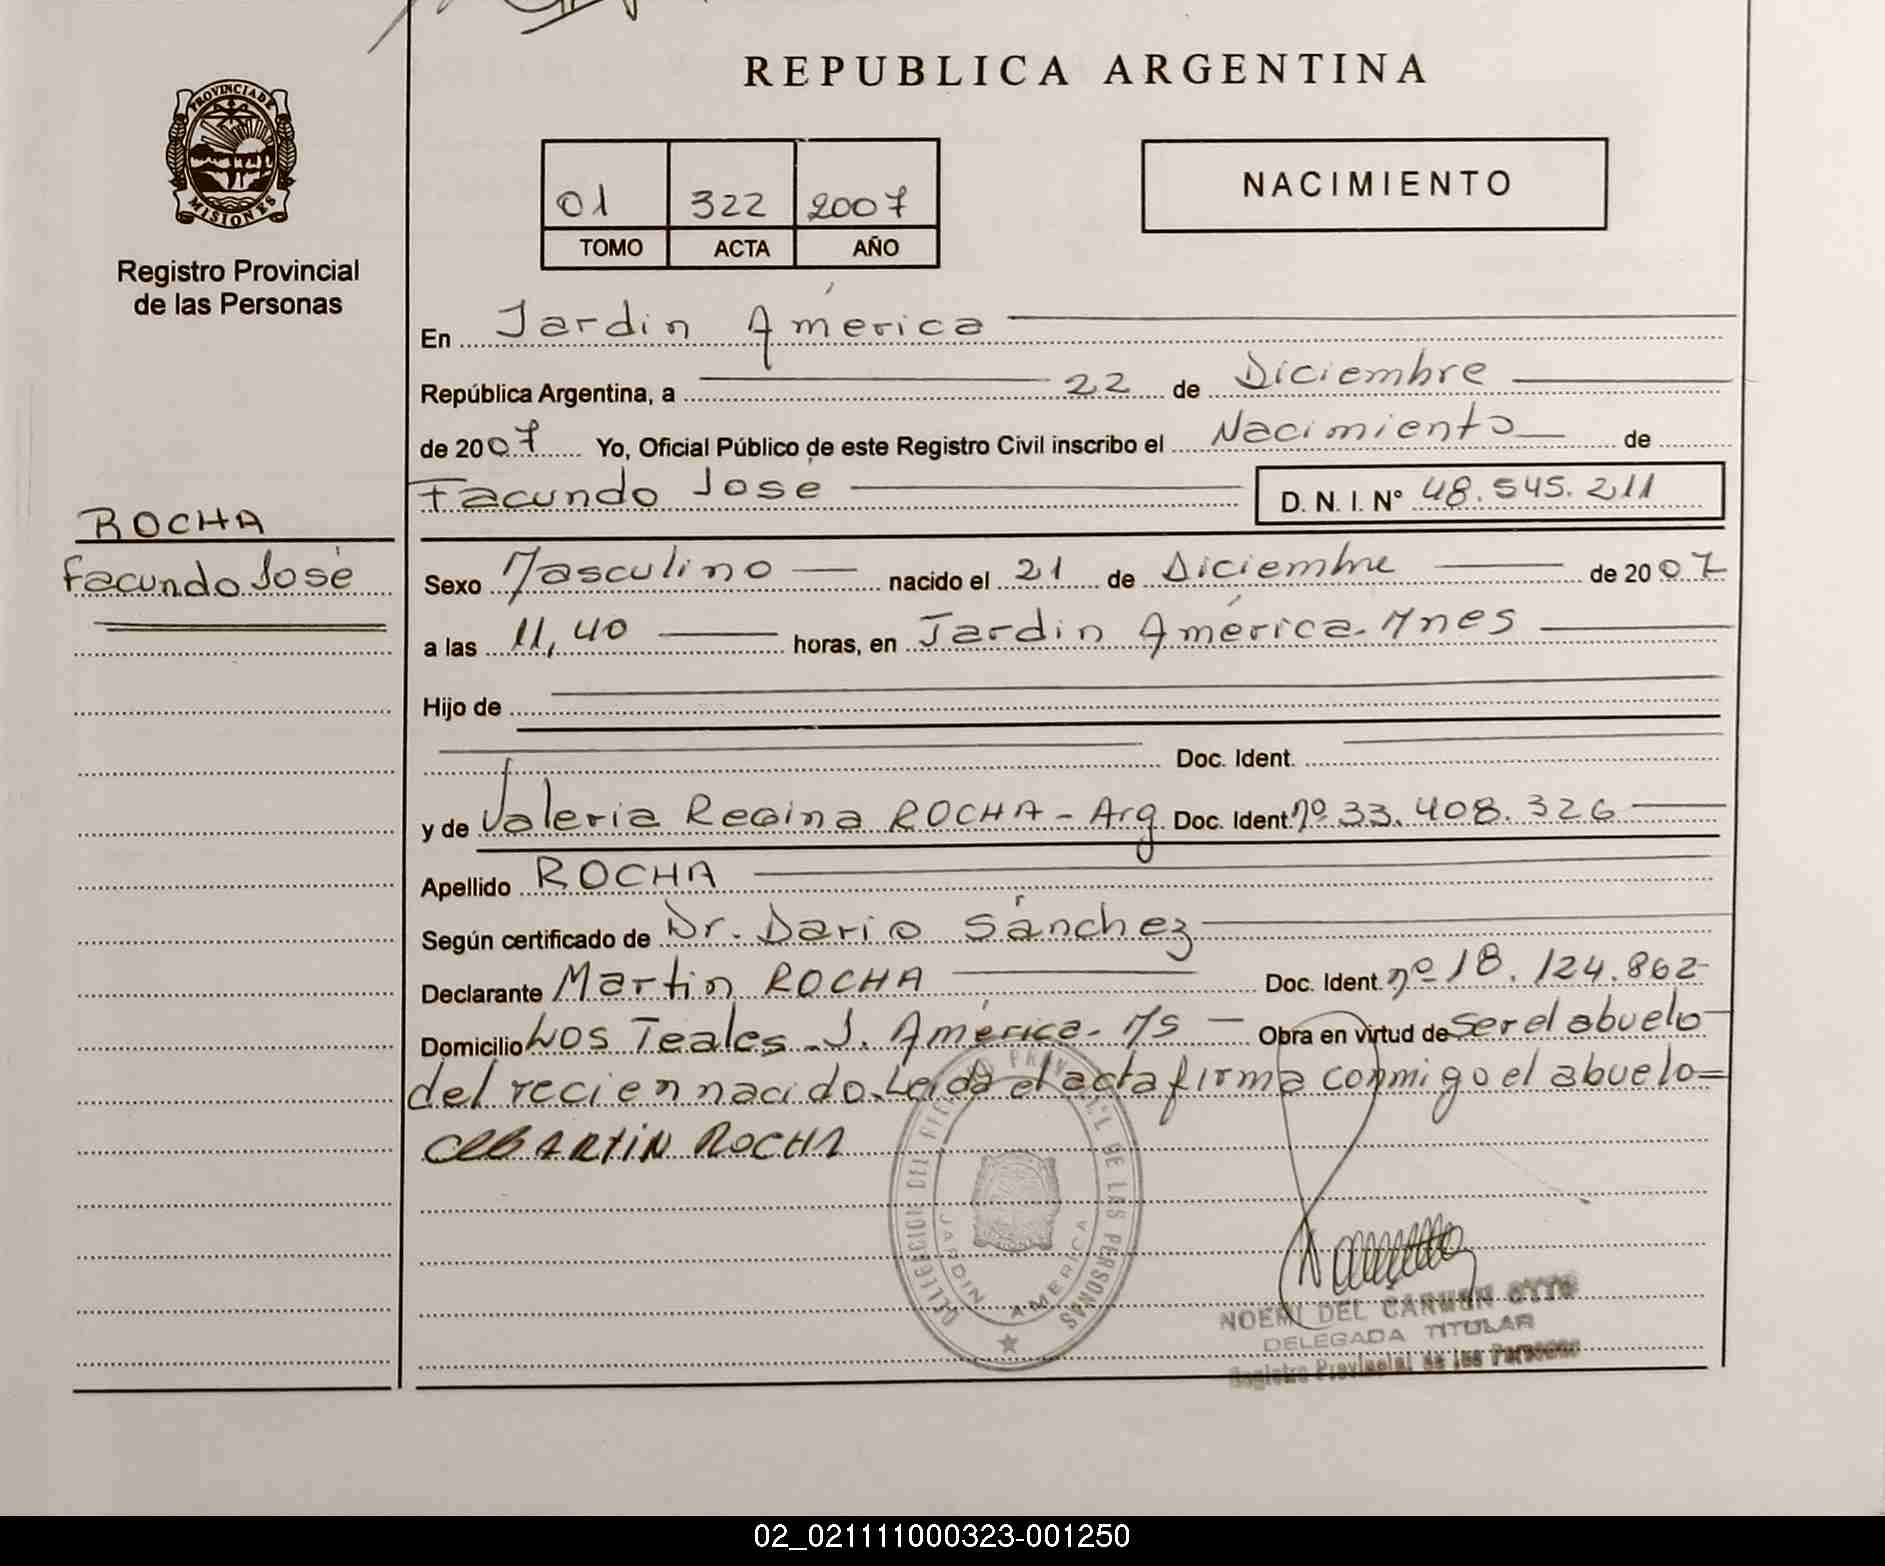 REPUBLICA ARGENTINA
PROVINCIA DE
MISIONES
Registro Provincial
de las Personas
01 322 2007
TOMO ACTA AÑO
NACIMIENTO
En Jardin América
República Argentina, a 22 de Diciembre
de 2007 Yo, Oficial Público de este Registro Civil inscribo el Nacimiento de
Facundo José D. N. I. Nº 48.545.211
ROCHA
Facundo José
Sexo Masculino nacido el 21 de Diciembre de 2007
a las 11,40 horas, en Jardin América-Mnes
Hijo de
Doc. Ident.
y de Valeria Regina ROCHA - Arg Doc. Ident. nº 33.408.326
Apellido ROCHA
Según certificado de Dr. Dario Sánchez
Declarante Martin ROCHA Doc. Ident. nº 18.124.862
Domicilio Los Teales - J. América - Ms Obra en virtud de ser el abuelo
del recien nacido. Leída el acta firma conmigo el abuelo
MARTIN ROCHA
DELEGACION DEL REGISTRO PROVINCIAL DE LAS PERSONAS
JARDIN AMERICA
NOEMI DEL CARMEN OTTO
DELEGADA TITULAR
Registro Provincial de las Personas
02_021111000323-001250